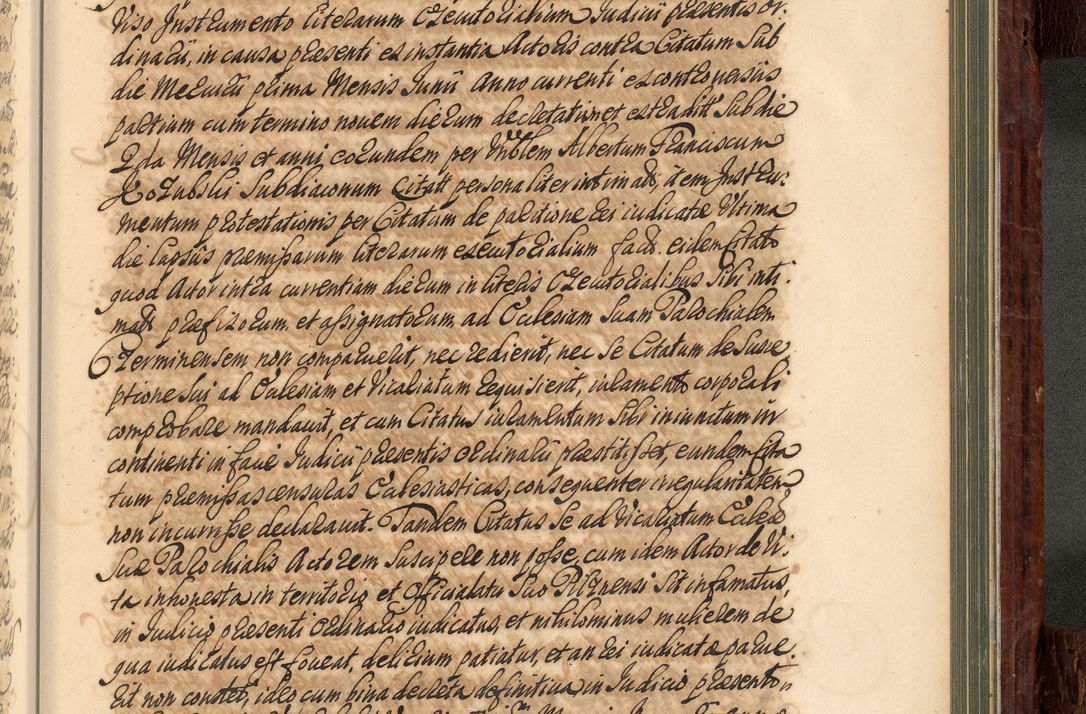 Viso Instrumento literarum Executorialium Iudicii præsentis or-
dinarii, in causa præsenti ex instantia Actoris contra Citatum sub
die Mercurii prima Mensis Iunii anno currenti ex controversiis
partium cum termino novem dierum decretatim et extradit sub die
2da Mensis et anni eorundem per Vnblem Albertum Franciscum
subdiaconum Citatt personaliter intimatt, item Instru-
mentum protestationis per Citatum de paritione rei iudicatæ Ultima
die lapsus præmissarum literarum executorialium fact. eidem Citato
quod Actor intra currentiam dierum in literis Executorialibus sibi inti-
matt præfixorum, et assignatorum, ad Ecclesiam suam Parochialem
Czerminensem non comparuerit, nec redierit, nec se Citatum de susce-
ptione sui ad Ecclesiam et Vicariatum requisierit, iuramento corporali
comprobare mandavit, et cum Citatus iuramentum sibi iniunctum in
continenti in facie Iudicii præsentis ordinarii præstitisset, eundem Cita
tum præmissas censuras Ecclesiasticas, consequenter irregularitatem
non incurrisse, declaravit. Tandem Citatus se ad vicariatum Ecclesiæ
suæ Parochialis Actorem suscipere non posse, cum idem Actor de vi-
ta inhonesta in territorio et Officialatu suo Pilznensi sit infamatus,
in Iudicio præsenti Ordinario iudicatus, et nihilominus mulierem de
qua iudicatus est foveat, delirium patiatur, et an rei iudicatæ parue-
rit non constet, ideo cum bina decreta definitiva in Iudicio præsenti